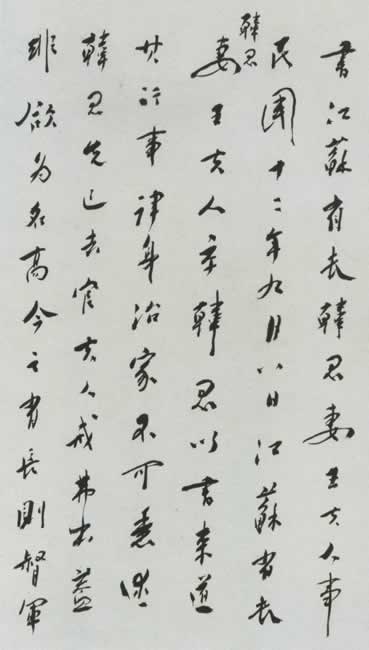 書江蘇省長韓恩妻王夫人事
民國十二年九月八日江蘇省長
韓恩
妻王夫人卒韓恩以書來道
其行事律身治家不可悉述
韓恩先已去官夫人戒弗出蓋
雖欲為名高今之省長則督軍